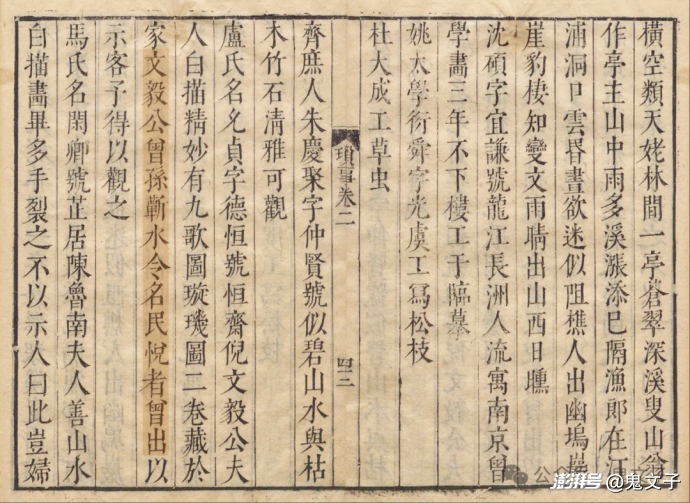 橫空類天姥林間一亭蒼翠深溪叟山翁
作亭主山中雨多溪漲添巳隔漁郎在江
浦洞口雲昏晝欲迷似阻樵人出幽塢
崖豹棲知變文雨晴出山西日曛
沈碩字宜謙號龍江長洲人流寓南京曾
學畫三年不下樓工于臨摹
姚太學衍舜字光虞工寫松枝
杜大成工草虫
瑣事卷二
四三
齊庶人朱慶聚字仲賢號似碧山水與枯
木竹石清雅可觀
盧氏名允貞字德恒號恒齋倪文毅公夫
人白描精妙有九歌圖璇璣圖二卷藏於
家文毅公曾孫蘄水令名民悅者曾出以
示客予得以觀之
馬氏名閑卿號芷居陳魯南夫人善山水
白描畫畢多手裂之不以示人曰此豈婦
公众号
澎湃号@鬼文子